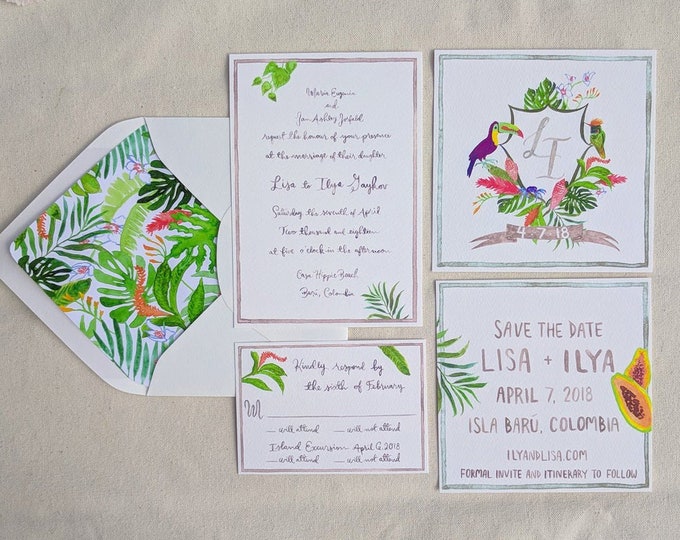 and
request the honour of your presence
at the marriage of their daughter
Lisa to Ilya
Saturday the seventh of April
Two thousand and eighteen
at five o'clock in the afternoon
Casa Hippie Beach
Barú, Colombia
LI
4·7·18
Kindly respond by
the sixth of February
M
will attend will not attend
Island Excursion April 6, 2018
will attend will not attend
SAVE THE DATE
LISA + ILYA
APRIL 7, 2018
ISLA BARÚ, COLOMBIA
ILYANDLISA.COM
FORMAL INVITE AND ITINERARY TO FOLLOW